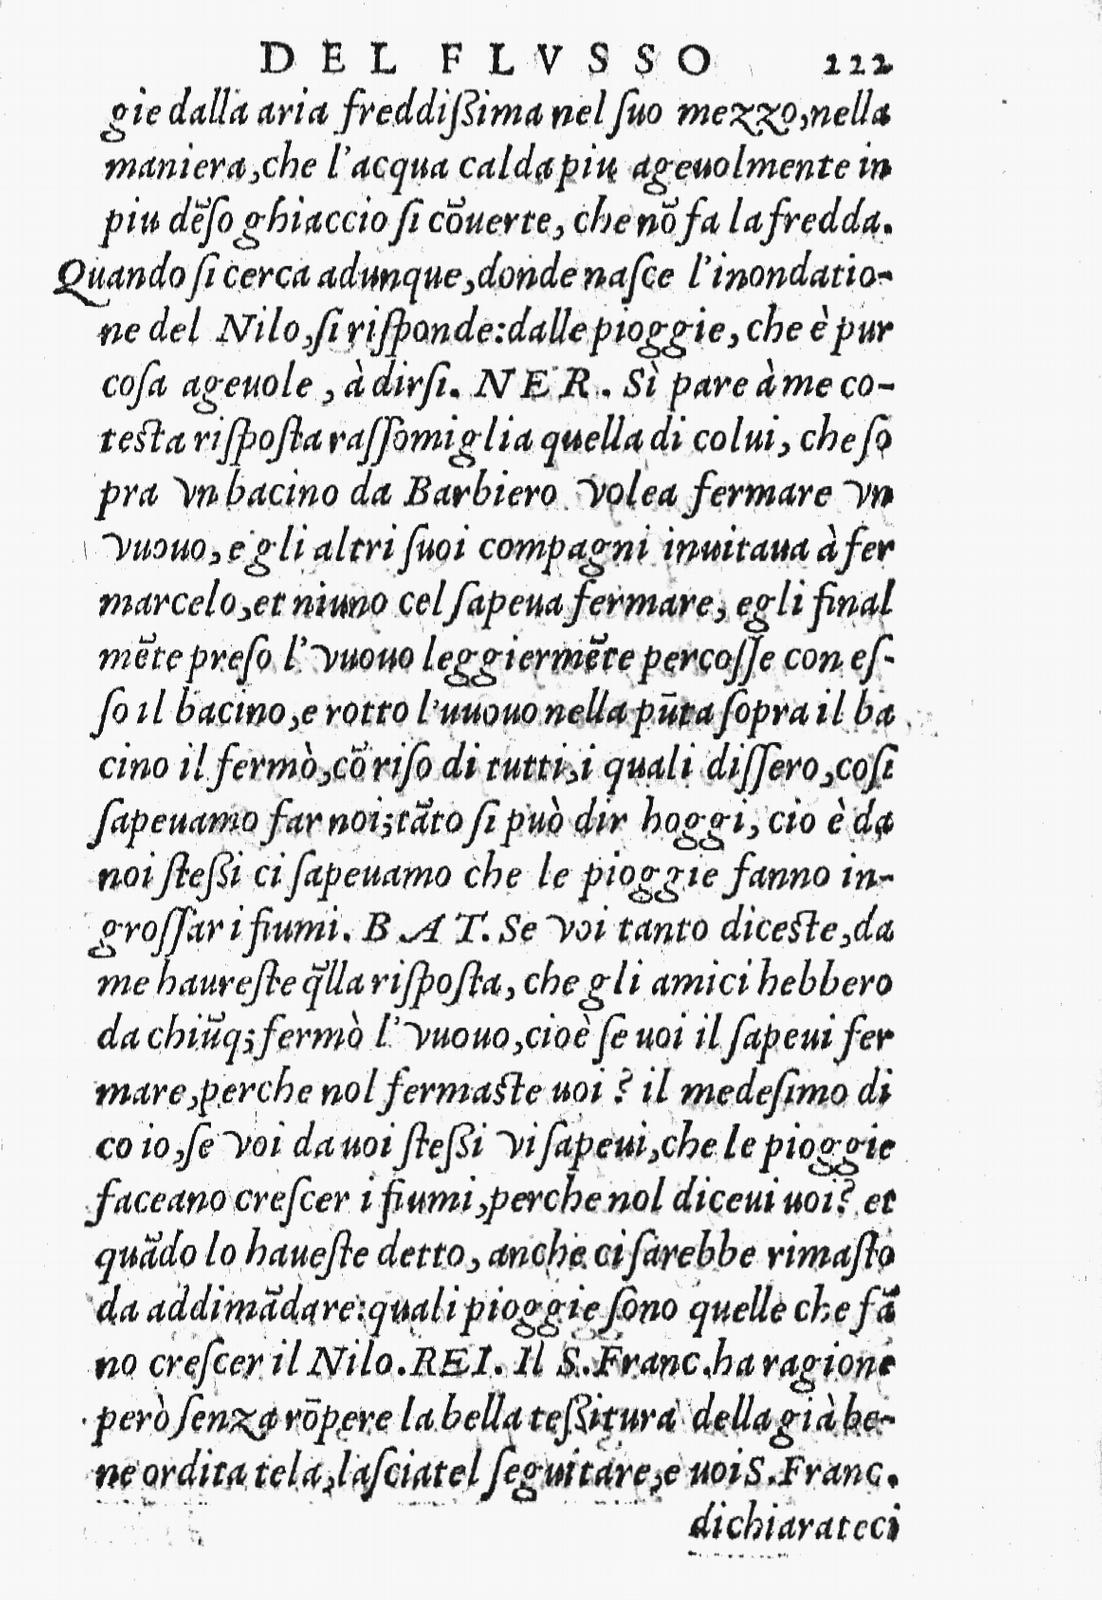 DEL FLVSSO 222
gie dalla aria freddißima nel ſuo mezzo, nella
maniera, che l'acqua calda piu ageuolmente in
piu dẽſo ghiaccio ſi cõuerte, che nõ fa la fredda.
Quando ſi cerca adunque, donde naſce l'inondatio-
ne del Nilo, ſi riſponde: dalle pioggie, che è pur
coſa ageuole, à dirſi. NER. Sì pare à me co-
teſta riſpoſta raſſomiglia quella di colui, che ſo
pra vn bacino da Barbiero volea fermare vn
vuouo, e gli altri ſuoi compagni inuitaua à fer
marcelo, et niuno cel ſapeua fermare, egli final
mẽte preſo l'vuouo leggiermẽte percoſſe con eſ-
ſo il bacino, e rotto l'uuouo nella pũta ſopra il ba
cino il fermò, cõ riſo di tutti, i quali diſſero, coſi
ſapeuamo far noi; tãto ſi può dir hoggi, cio è da
noi ſteßi ci ſapeuamo che le pioggie fanno in-
groſſar i fiumi. BAT. Se voi tanto diceſte, da
me haureſte q̃lla riſpoſta, che gli amici hebbero
da chiũq; fermò l'vuouo, cioè ſe uoi il ſapeui fer
mare, perche nol fermaſte uoi? il medeſimo di
co io, ſe voi da uoi ſteßi vi ſapeui, che le pioggie
faceano creſcer i fiumi, perche nol diceui uoi? et
quãdo lo haueſte detto, anche ci ſarebbe rimaſto
da addimãdare: quali pioggie ſono quelle che fã
no creſcer il Nilo. REI. Il S. Franc. ha ragione
però ſenza rõpere la bella teßitura della già be-
ne ordita tela, laſciatel ſeguitare, e uoi S. Franc.
dichiarateci